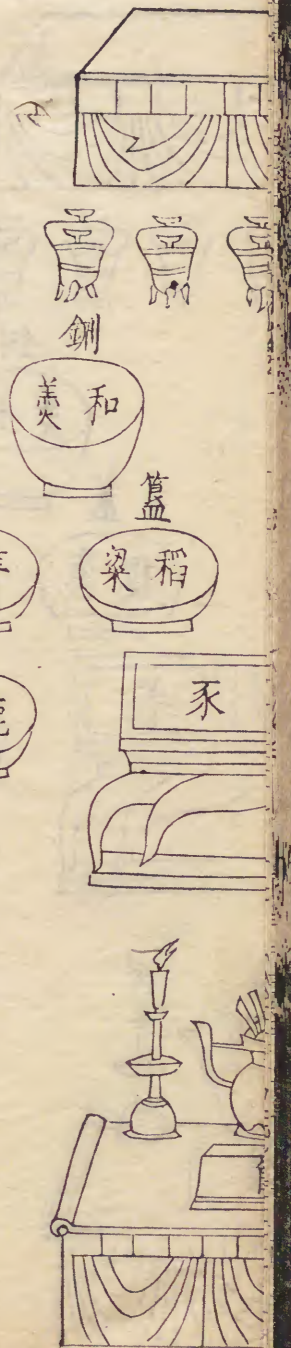 鉶
和羹
簠
稻粱
豕